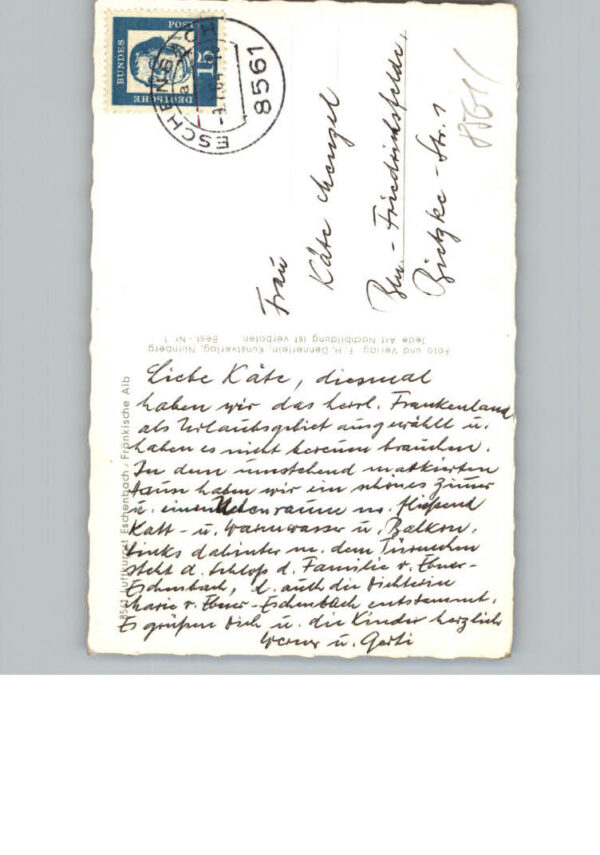 DEUTSCHE
BUNDES
POST
15
ESCHENBACH
8561
Frau
Käte Menzel
Bln.-Friedrichsfelde
Bietzke-Str. 1
8561
Foto und Verlag F. H. Dennerlein, Kunstverlag, Nürnberg
Jede Art Nachbildung ist verboten Best.-Nr. 1
8561 Luftkurort Eschenbach / Fränkische Alb
Liebe Käte, diesmal
haben wir das herrl. Frankenland
als Urlaubsgebiet ausgewählt u.
haben es nicht bereuen brauchen.
In dem umstehend markierten
Hause haben wir ein schönes Zimmer
u. einen Nebenraum m. fließend
Kalt- u. Warmwasser u. Balkon.
Links dahinter m. dem Türmchen
steht d. Schloß d. Familie v. Ebner-
Eschenbach, d. auch die Dichterin
Marie v. Ebner-Eschenbach entstammt.
Es grüßen Dich u. die Kinder herzlich
Werner u. Gerti